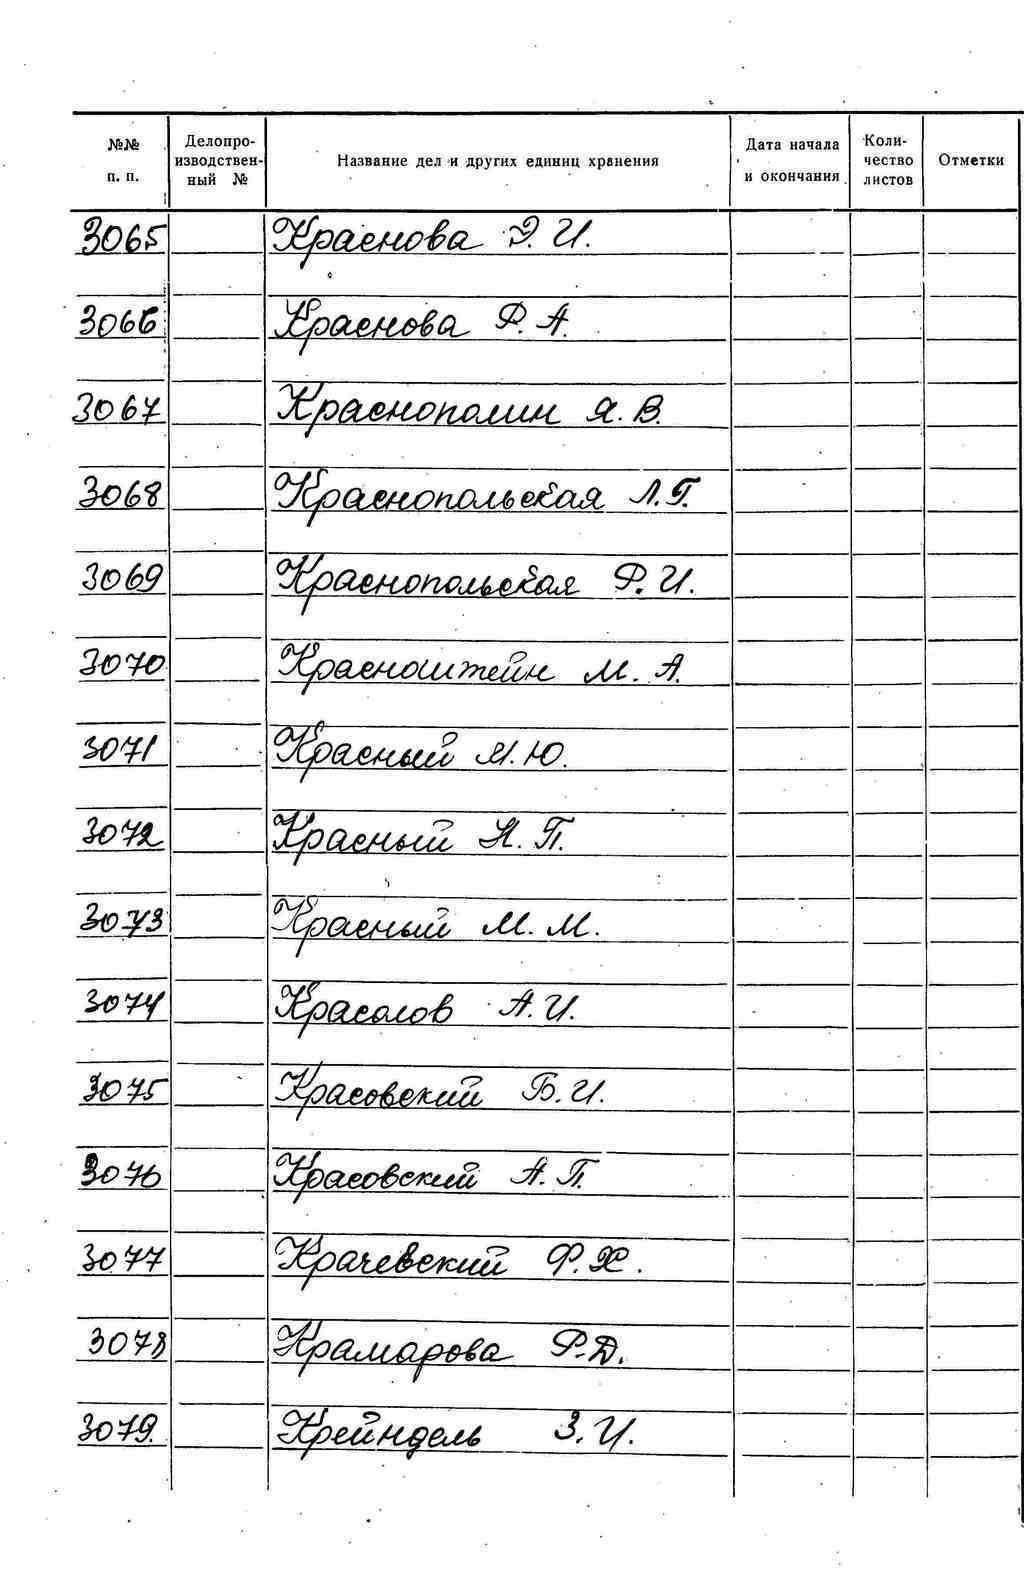 №№ п. п. Делопроизводственный № Название дел и других единиц хранения Дата начала и окончания Количество листов Отметки
3065 Краснова Э. И.
3066 Краснова Ф. А.
3067 Краснополин Я. В.
3068 Краснопольская Л. Г.
3069 Краснопольская Р. И.
3070 Красноштейн М. А.
3071 Красный Я. Ю.
3072 Красный Н. П.
3073 Красный М. М.
3074 Красолов А. И.
3075 Красовский Б. И.
3076 Красовский А. П.
3077 Крачевский Ф. Х.
3078 Крамарова Р. D.
3079. Крейндель З. И.